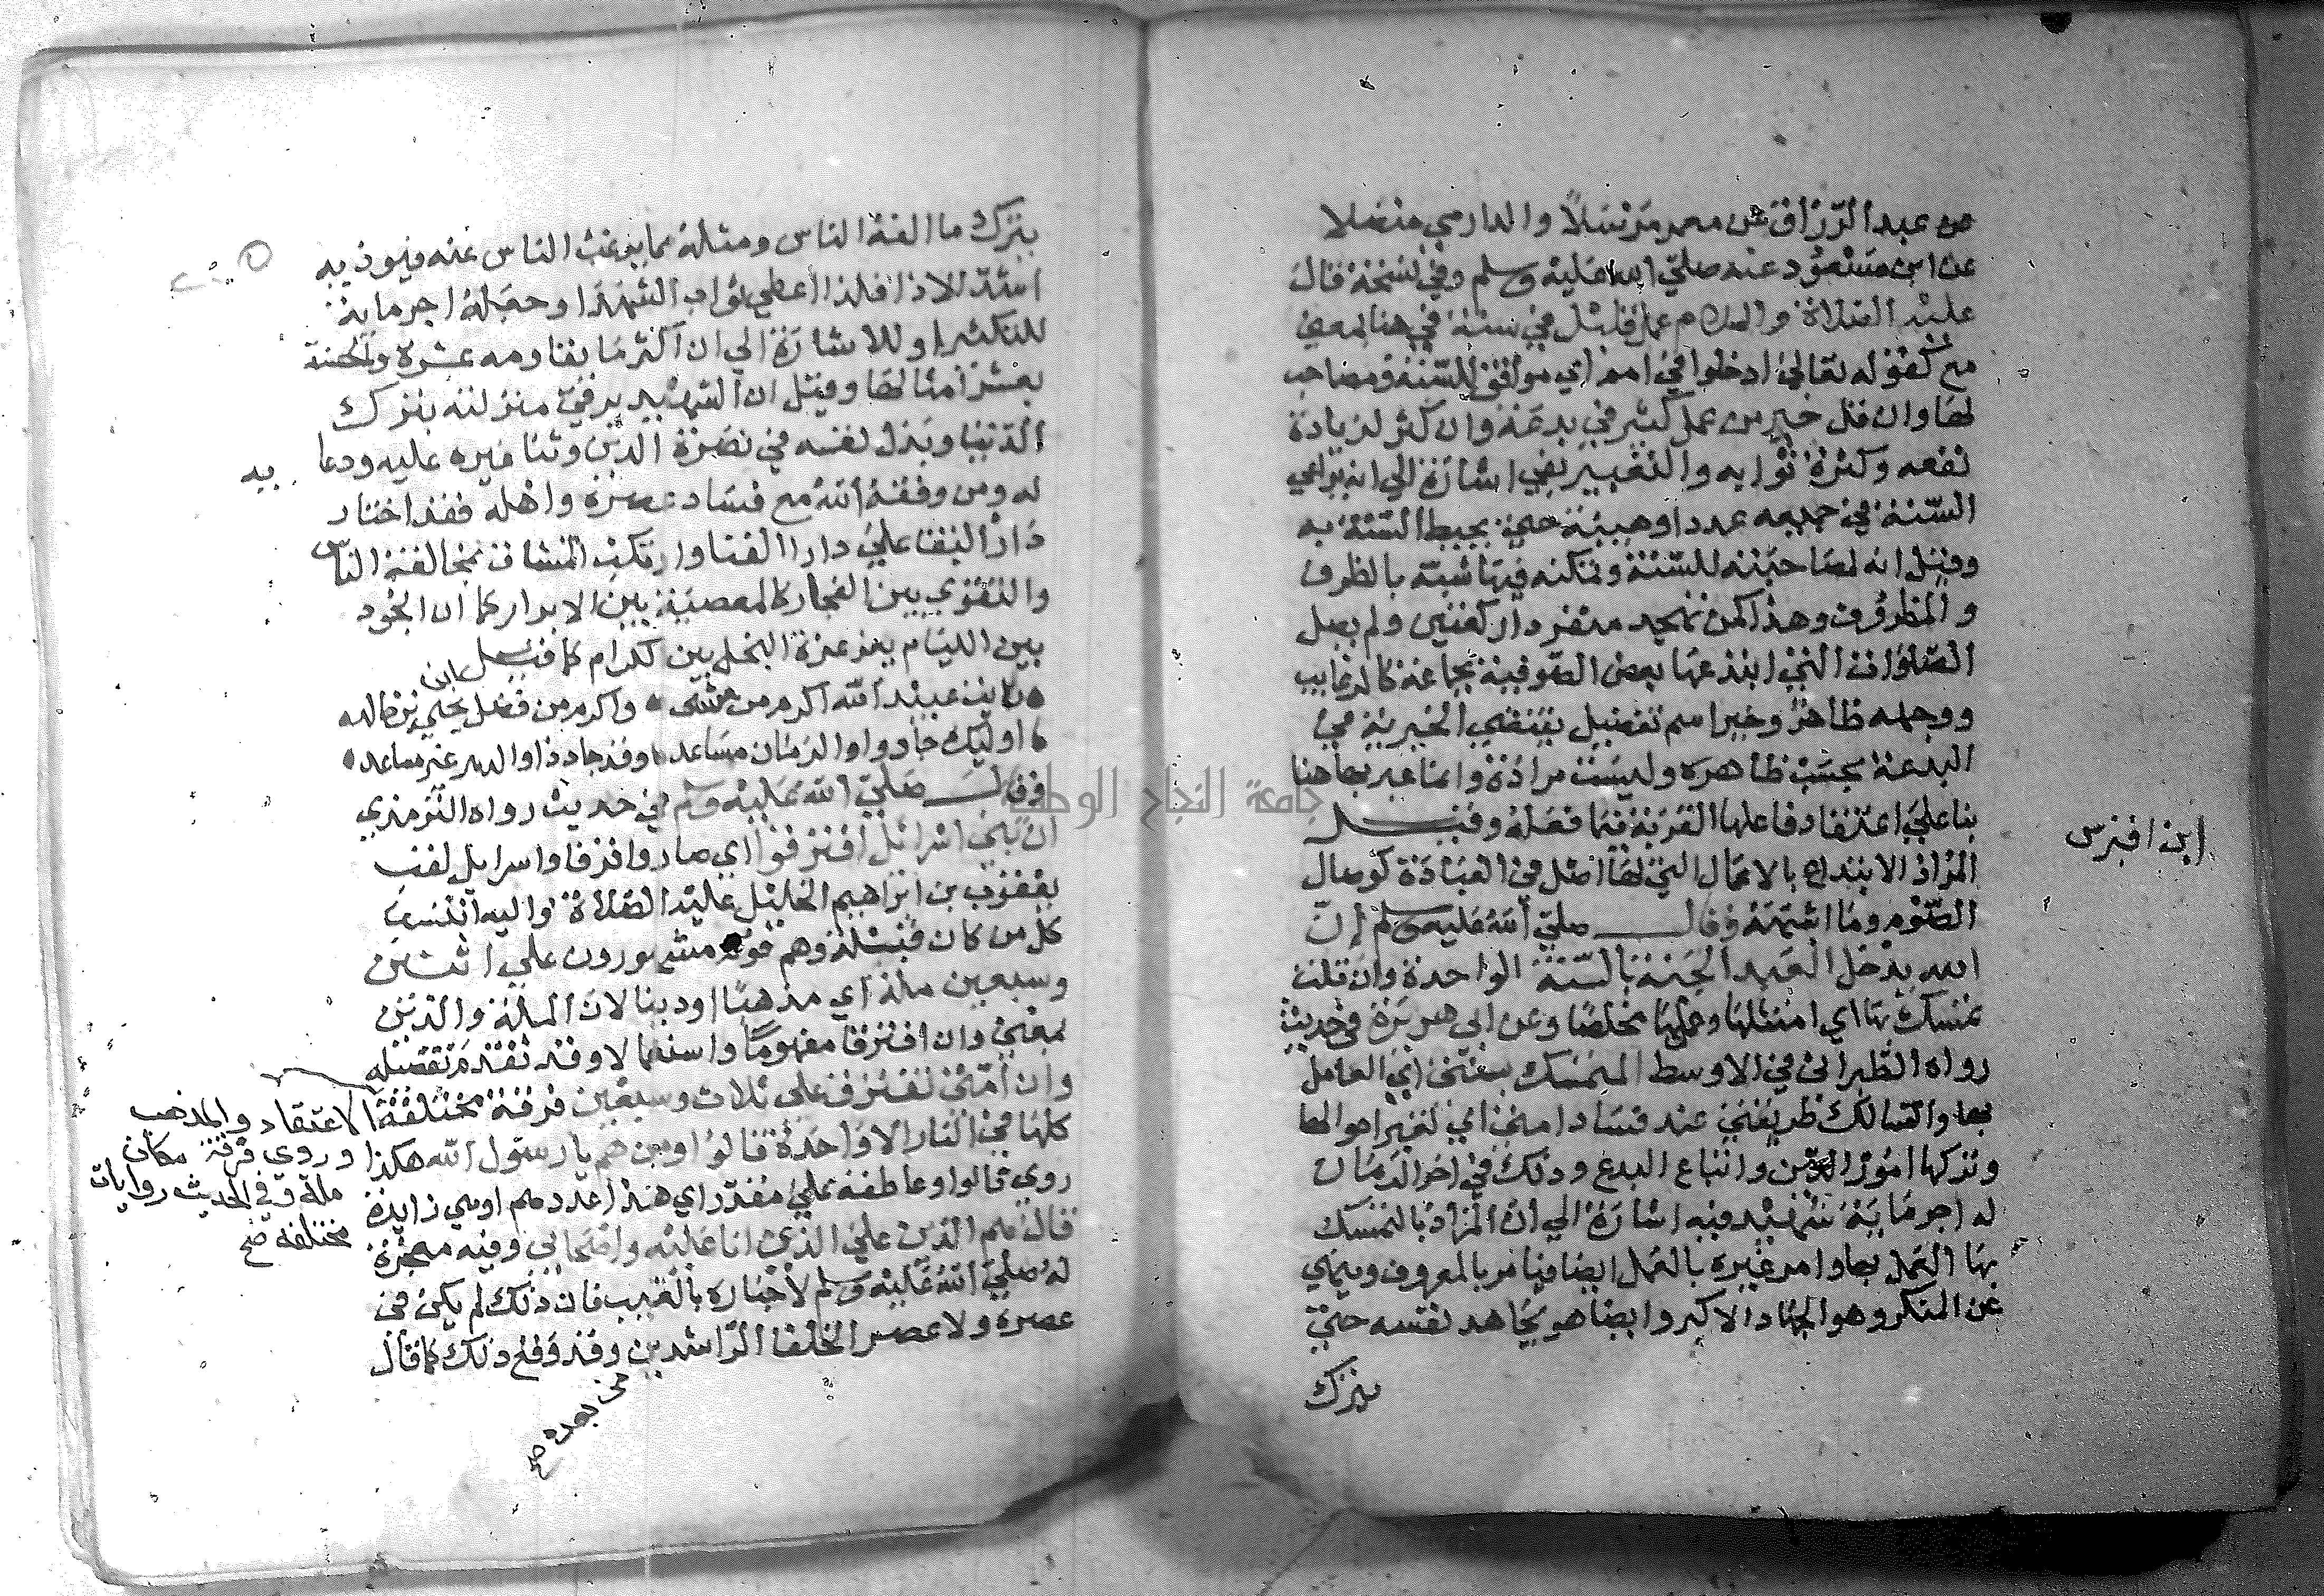 عن عبد الرزاق عن معمر مرسلا والدارمي متصلا
عن ابن مسعود عنه صلي الله عليه وسلم وفي نسخة قال
عليه الصلاة والسلام عمل قليل في سنة في هنا بمعني
مع كقوله تعالي ادخلوا في امم اي موافق للسنة ومصاحب
لها وان قل خير من عمل كثير في بدعة وان كثر لزيادة
نفعه وكثرة ثوابه والتعبير بفي اشارة الي انه يراعي
السنة في جميعه عددا وهيئة حتي يحيط السنة به
وقيل انه لمصاحبته للسنة وتمكنه فيها شبه بالظرف
والمظروف وهذا كمن تهجد منفردا ركعتين ولم يصل
الصلوات التي ابتدعها بعض الصوفية بجماعة كالرغايب
ووجهه ظاهر وخير اسم تفضيل يقتضي الخيرية في
البدعة بحسب ظاهره وليست مرادة وانما عبر بها هنا
بنا علي اعتقاد فاعلها القربة فيما فعله وقيل
المراد الابتداع بالاعمال التي لها اصل في العبادة كوصال
الصوم وما اشبهه وقال صلي الله عليه وسلم ان
الله يدخل العبد الجنة بالسنة الواحدة وان قلت
تمسك بها اي امتثلها وعملها مخلصا وعن ابي هريرة في حديث
رواه الطبراني في الاوسط المتمسك بسنتي اي العامل
بها والسالك طريقتي عند فساد امتي اي لتغير احوالها
وتركها امور الدين واتباع البدع وذلك في اخر الزمان
له اجر ماية شهيد فيه اشارة الي ان المراد بالتمسك
بها العمل بها وامر غيره بالعمل ايضا فيامر بالمعروف وينهي
عن المنكر وهو الجهاد الاكبر وايضا هو يجاهد نفسه حتي
يترك
ابن اقبرس
بترك ما الفه الناس ومثله مما يرغب الناس عنه فيوذيه
اشد الاذا فلذا اعطي ثواب الشهدا وجعله اجر ماية
للتكثير او للاشارة الي ان اكثر ما يقاومه عشرة والحسنة
بعشر امثالها وقيل ان الشهيد يرقي منزلته بترك
الدنيا وبذل نفسه في نصرة الدين وثنا غيره عليه ودعا
له ومن وفقه الله مع فساد عصره واهله فقد اختار
دار البقا علي دار الفنا وارتكب المشاق بمخالفة الناس
والتقوي بين الفجار كالمعصية بين الابرار كما ان الجود
بين الليام يعز عزة البخل بين كرام كما قيل
واكرم من فضل يحيي بن خالد
اوليك جادوا والزمان مساعد وقد جاد ذا والدهر غير مساعد
وقال صلي الله عليه وسلم في حديث رواه الترمذي
ان بني اسرائل افترقوا اي صاروا فرقا واسرايل لقب
يعقوب بن ابراهيم الخليل عليه الصلاة واليه انتسب
كل من كان قبله وهم قوم مشهورون علي اثنتين
وسبعين ملة اي مذهبا او دينا لان الملة والدين
بمعني وان افترقا مفهوما واستعمالا وقد تقدم تفصيله
وان امتي تفترق علي ثلاث وسبعين فرقة مختلفة الاعتقاد والمذهب
كلها في النار الا واحدة قالوا ومن هم يا رسول الله هكذا
روي قالوا وعاطفة علي مقدر اي هذا عددهم او هي زايدة
قال هم الذين علي الذي انا عليه واصحابي وفيه معجزة
له صلي الله عليه وسلم لاخباره بالغيب فان ذلك لم يكن في
عصره ولا عصر الخلفا الراشدين وقد وقع ذلك كما قال
وروي فرقة مكان
ملة وفي الحديث روايات
مختلفة صح
من بعده صح
جامعة النجاح الوطنية